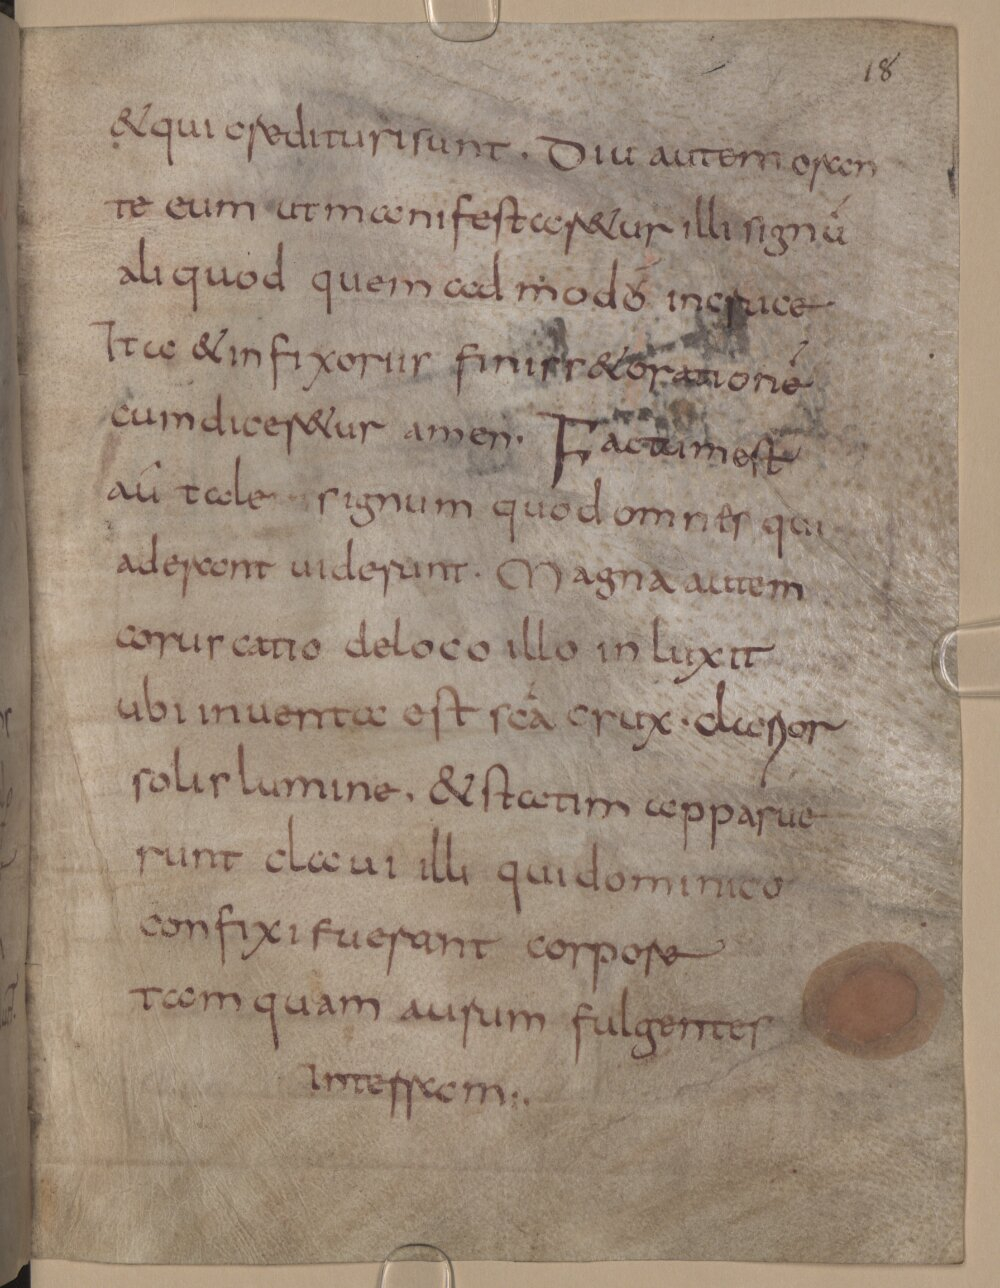 18
& qui credituri sunt. Diu autem oran
te eum ut manifestar&ur illi signū
aliquod quem ad modō in cruce
Ita & in fixorus finiss& orationē
cum dicer&ur amen. Factum est
aū tale signum quod omnes qui
aderant uiderunt. Magna autem
coruscatio de loco illo in luxit
ubi inuenta est scā crux. clarior
solis lumine. & statim apparue
runt claui illi qui dominico
confixi fuerant corpore
tamquam aurum fulgentes
Interram:.